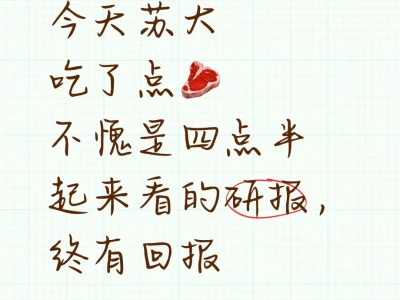 今天苏大
吃了点🥩
不愧是四点半
起来看的研报，
终有回报